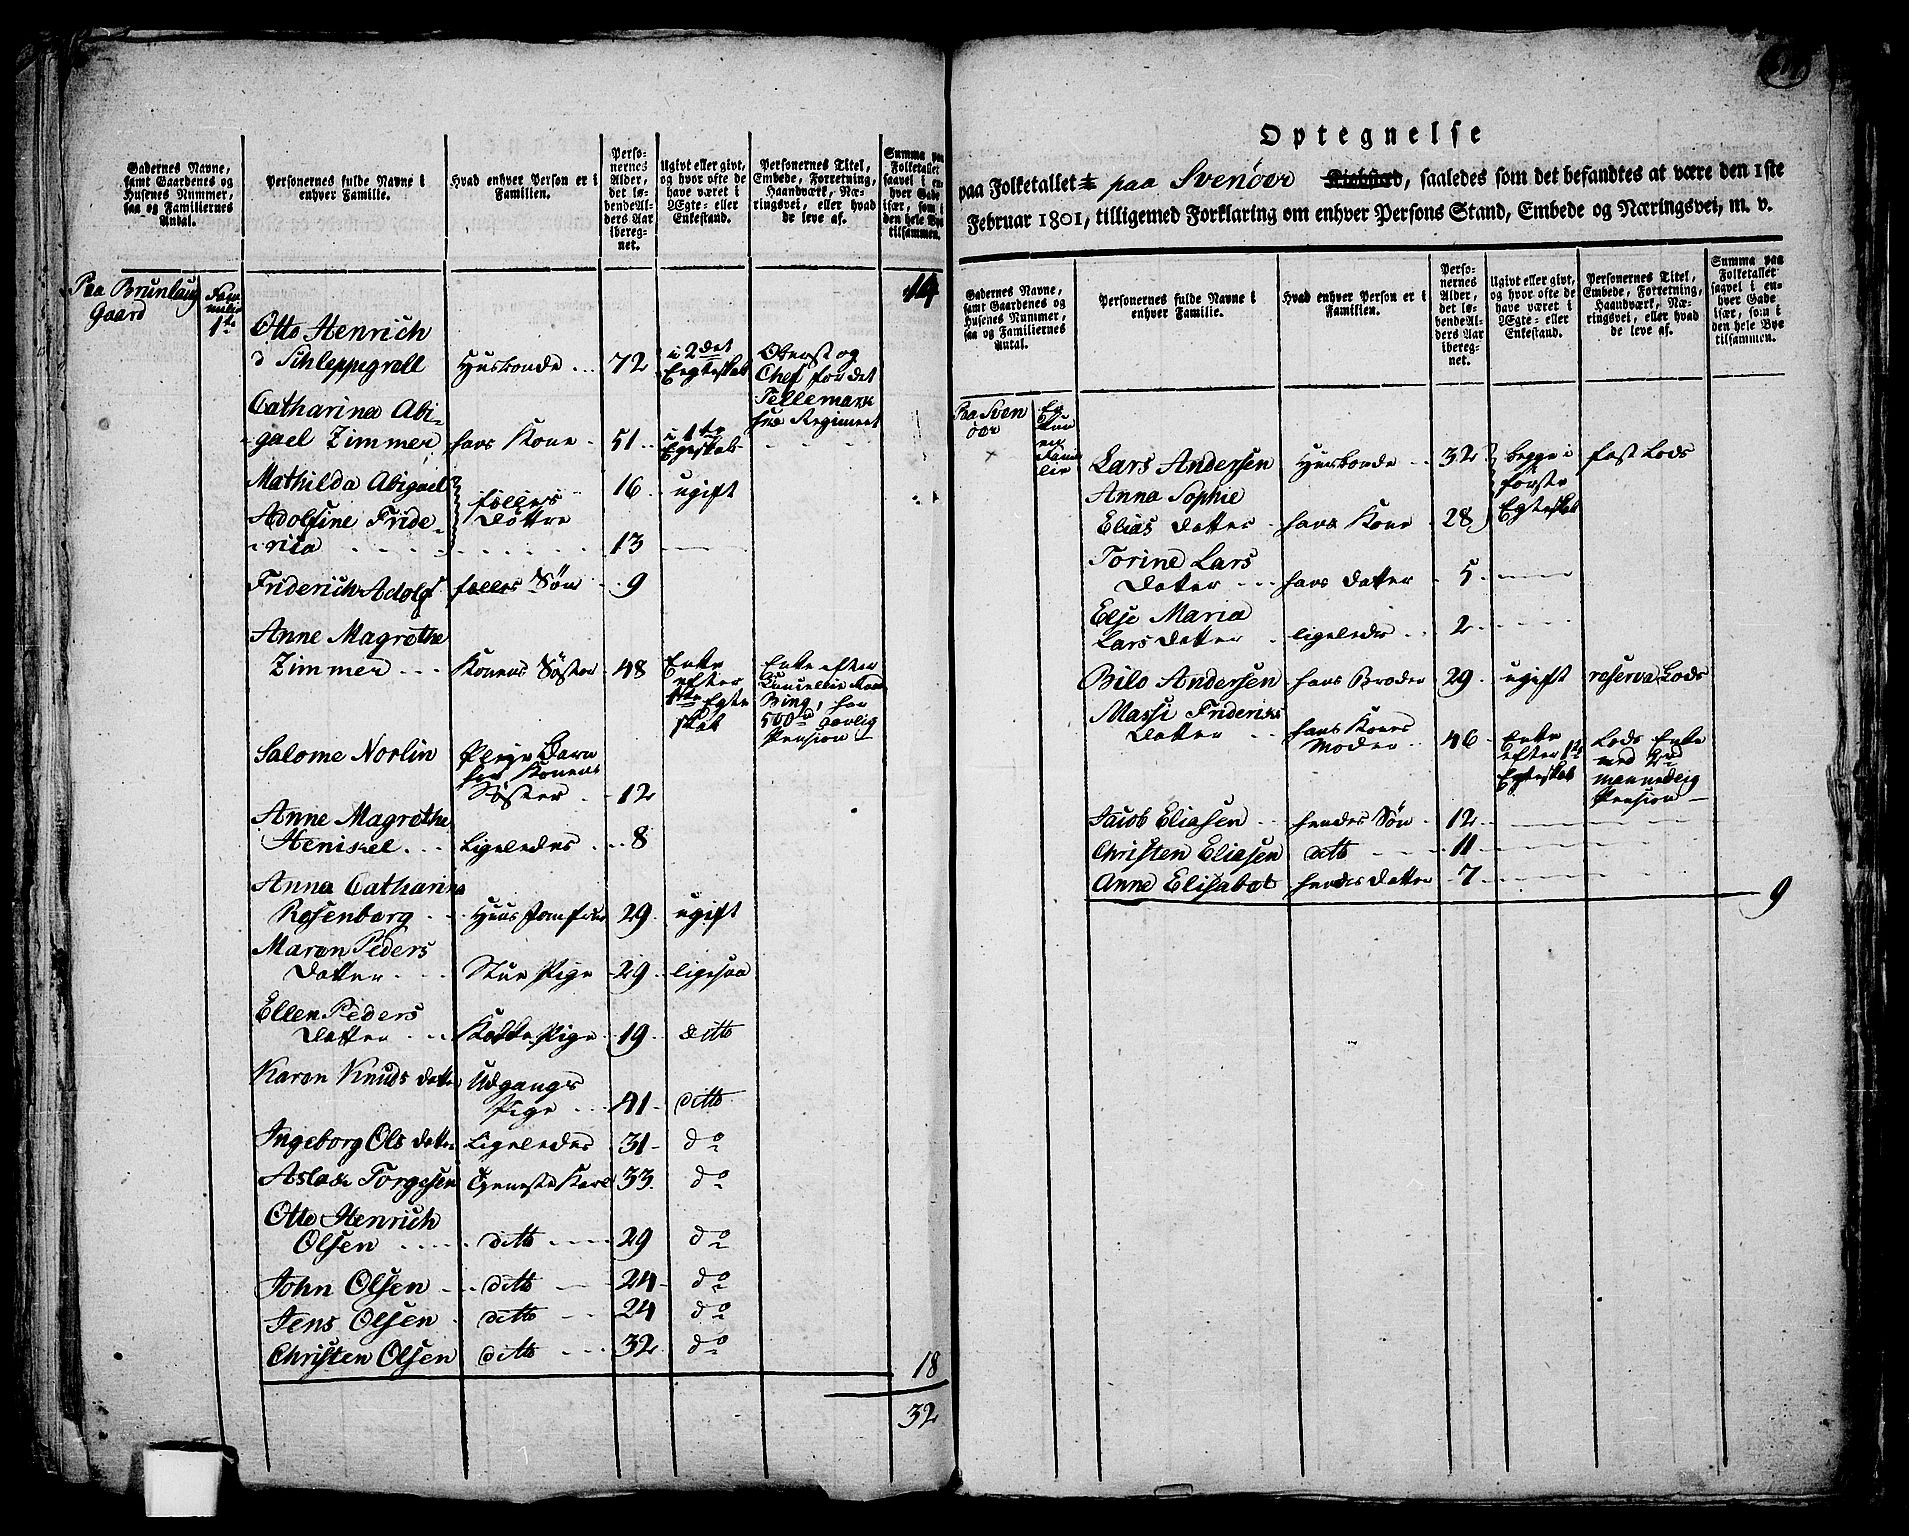 Gadernes Navne,
samt Gaardenes og
Husenes Nummer,
saa og Familiernes
Antal.
Personernes fulde Navne i
enhver Familie.
Hvad enhver Person er i
Familien.
Perso-
nernes
Alder,
det lø-
bende Al-
ders Aar
iberegnet.
Ugivt eller givt,
og hvor ofte de
have været i
Ægte- eller
Enkestand.
Personernes Titel,
Embede, Forretning,
Haandværk, Næ-
ringsvei, eller hvad
de leve af.
Summa paa
Folketallet
saavel i en-
hver Gade
især, som i
den hele Bye
tilsammen.
Paa Brunlaug
Gaard
Fam-
milier
1te
14
Otto Henrich
d Schleppegrell Husbonde 72 i 2det Egteskab Oberst og Chef for det Tellemarkske Regiment
Catharina Abi-
gael Zimmer hans Kone 51 i 1te Egteskab
Mathilda Abigael fælles Døttre 16 ugift
Adolfine Fride-
rica 13
Friderich Adolf fælles Søn 9
Anne Magrethe
Zimmer Konens Søster 48 Enke efter 1te Egteskab Enke efter Cancellie Raad Bing, har 500rd aarlig Pension
Salome Norlin Pleje Barn for Konens Søster 12
Anne Magrethe
Heniskel Ligeledes 8
Anna Catharina
Rosenberg Huus Jomfrue 29 ugift
Maren Peders
Datter Stue Pige 29 ligesaa
Ellen Peders
Datter Kokke Pige 19 ditto
Karen Knuds datter Udgangs Pige 41 ditto
Ingeborg Ols datter Ligeledes 31 do
Aslak Torgesen Tjeneste Karl 33 do
Otto Henrich
Olsen ditto 29 do
John Olsen ditto 24 do
Jens Olsen ditto 24 do
Christen Olsen ditto 32 do
18
32
Optegnelse
paa Folketallet paa Svenöer Kiøbsted, saaledes som det befandtes at være den 1ste
Februar 1801, tilligemed Forklaring om enhver Persons Stand, Embede og Næringsvei, m. v.
Gadernes Navne,
samt Gaardenes og
Husenes Nummer,
saa og Familiernes
Antal.
Personernes fulde Navne i
enhver Familie.
Hvad enhver Person er i
Familien.
Perso-
nernes
Alder,
det lø-
bende Al-
ders Aar
ibereg-
net.
Ugivt eller givt,
og hvor ofte de
have været i
Ægte- eller
Enkestand.
Personernes Titel,
Embede, Forretning,
Haandværk, Næ-
ringsvei, eller hvad
de leve af.
Summa paa
Folketallet
saavel i en-
hver Gade
især, som i
den hele Bye
tilsammen.
Paa Sven
öer
Lars Andersen Husbonde 32 begge i første Egteskab fast Lods
Anna Sophie
Elias datter hans Kone 28
Torine Lars
Datter hans datter 5
Else Maria
Lars datter ligeledes 2
Bilo Andersen hans Broder 29 ugift reserva Lods
Massi Frideriks
Datter hans Kones Moder 46 Enke efter 1te Egteskab Lods Enke med 2rd mannedlig Pension
Jacob Eliasen hendes Søn 12
Christen Eliasen ditto 11
Anne Elisabet hendes datter 7
9